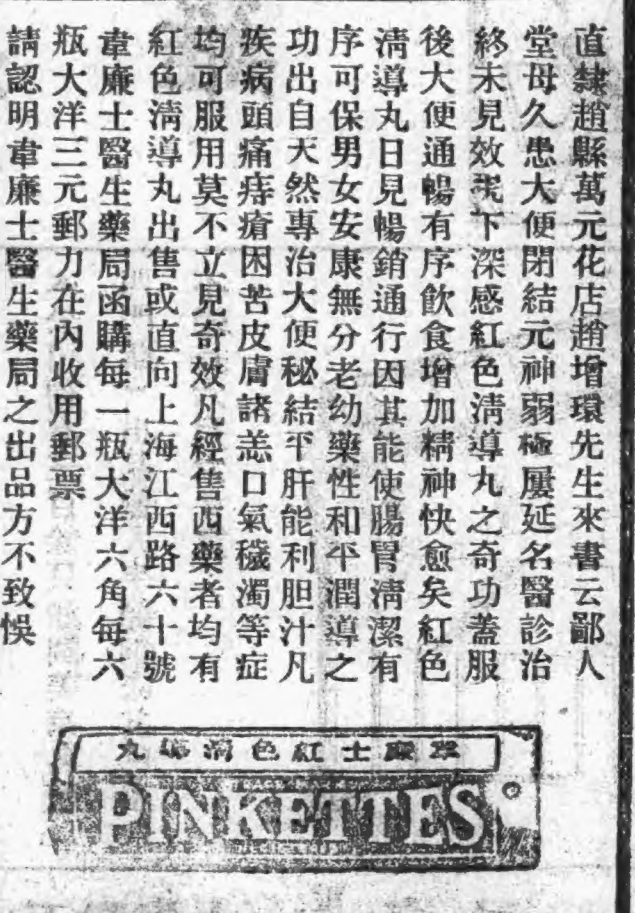 直隸趙縣萬元花店趙增環先生來書云鄙人
堂母久患大便閉結元神弱極屢延名醫診治
終未見效下深感紅色淸導丸之奇功蓋服
後大便通暢有序飮食增加精神快愈矣紅色
淸導丸日見暢銷通行因其能使腸胃淸潔有
序可保男女安康無分老幼藥性和平潤導之
功出自天然專治大便秘結平肝能利胆汁凡
疾病頭痛痔瘡困苦皮膚諸恙口氣穢濁等症
均可服用莫不立見奇效凡經售西藥者均有
紅色淸導丸出售或直向上海江西路六十號
韋廉士醫生藥局函購每一瓶大洋六角每六
瓶大洋三元郵力在內收用郵票
請認明韋廉士醫生藥局之出品方不致悞
丸導淸色紅士廉韋
PINKETTES